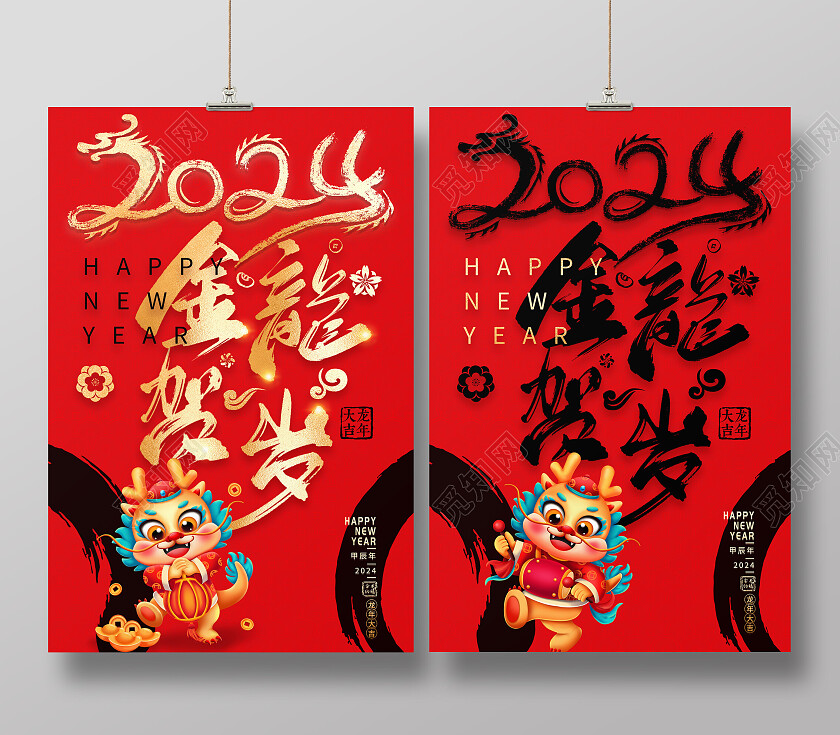 2024
HAPPY
NEW
YEAR
金龍
贺岁
龙年
大吉
HAPPY
NEW
YEAR
甲辰年
2024
龙年大吉
2024
HAPPY
NEW
YEAR
金龍
贺岁
龙年
大吉
HAPPY
NEW
YEAR
甲辰年
2024
龙年大吉
觅知网